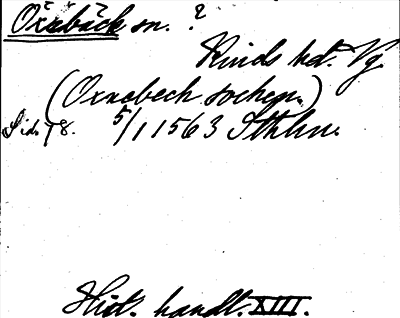 Öxnebäck sn. ?
Kinds hd. Vg.
(Oxnebech sochen.)
Sid. 78. 5/1 1563 Sthlm.
Hist. handl. XIII.